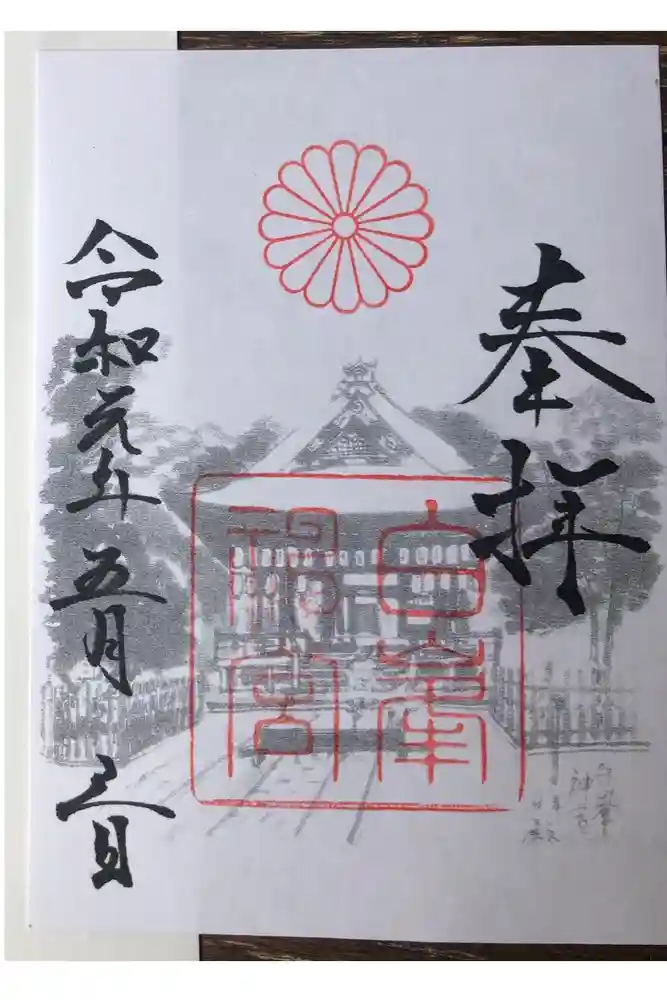 奉拝
白峯
神宮
令和元年五月三日
白峯
神宮